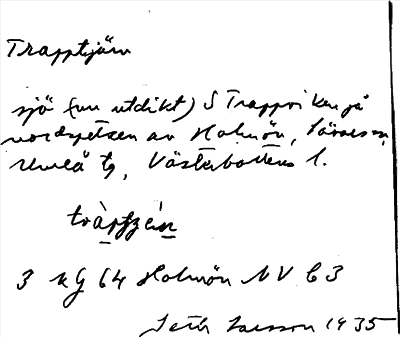 Trapptjärn
sjö (nu utdikt) S Trappviken på
nordspetsen av Holmön, Sävars sn,
Umeå tg, Västerbottens l.
3 NV 63 Holmön
Seth Larsson 1935